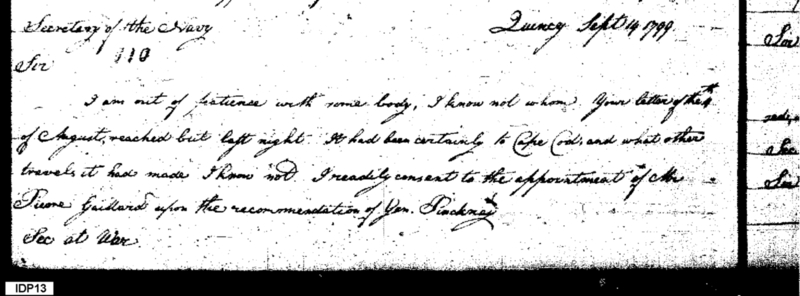 Secretary of the Navy Quincy Sept 14 1799.
Sir 110
I am out of patience with some body, I know not whom. Your letter of the 4th
of August, reached but last night. It had been certainly to Cape Cod, and what other
travels it had made I know not. I readily consent to the appointment of Mr
Pierre Gaillard upon the recommendation of Gen. Pinckney
Sec at War.
Sir
Sec
Sir
IDP13